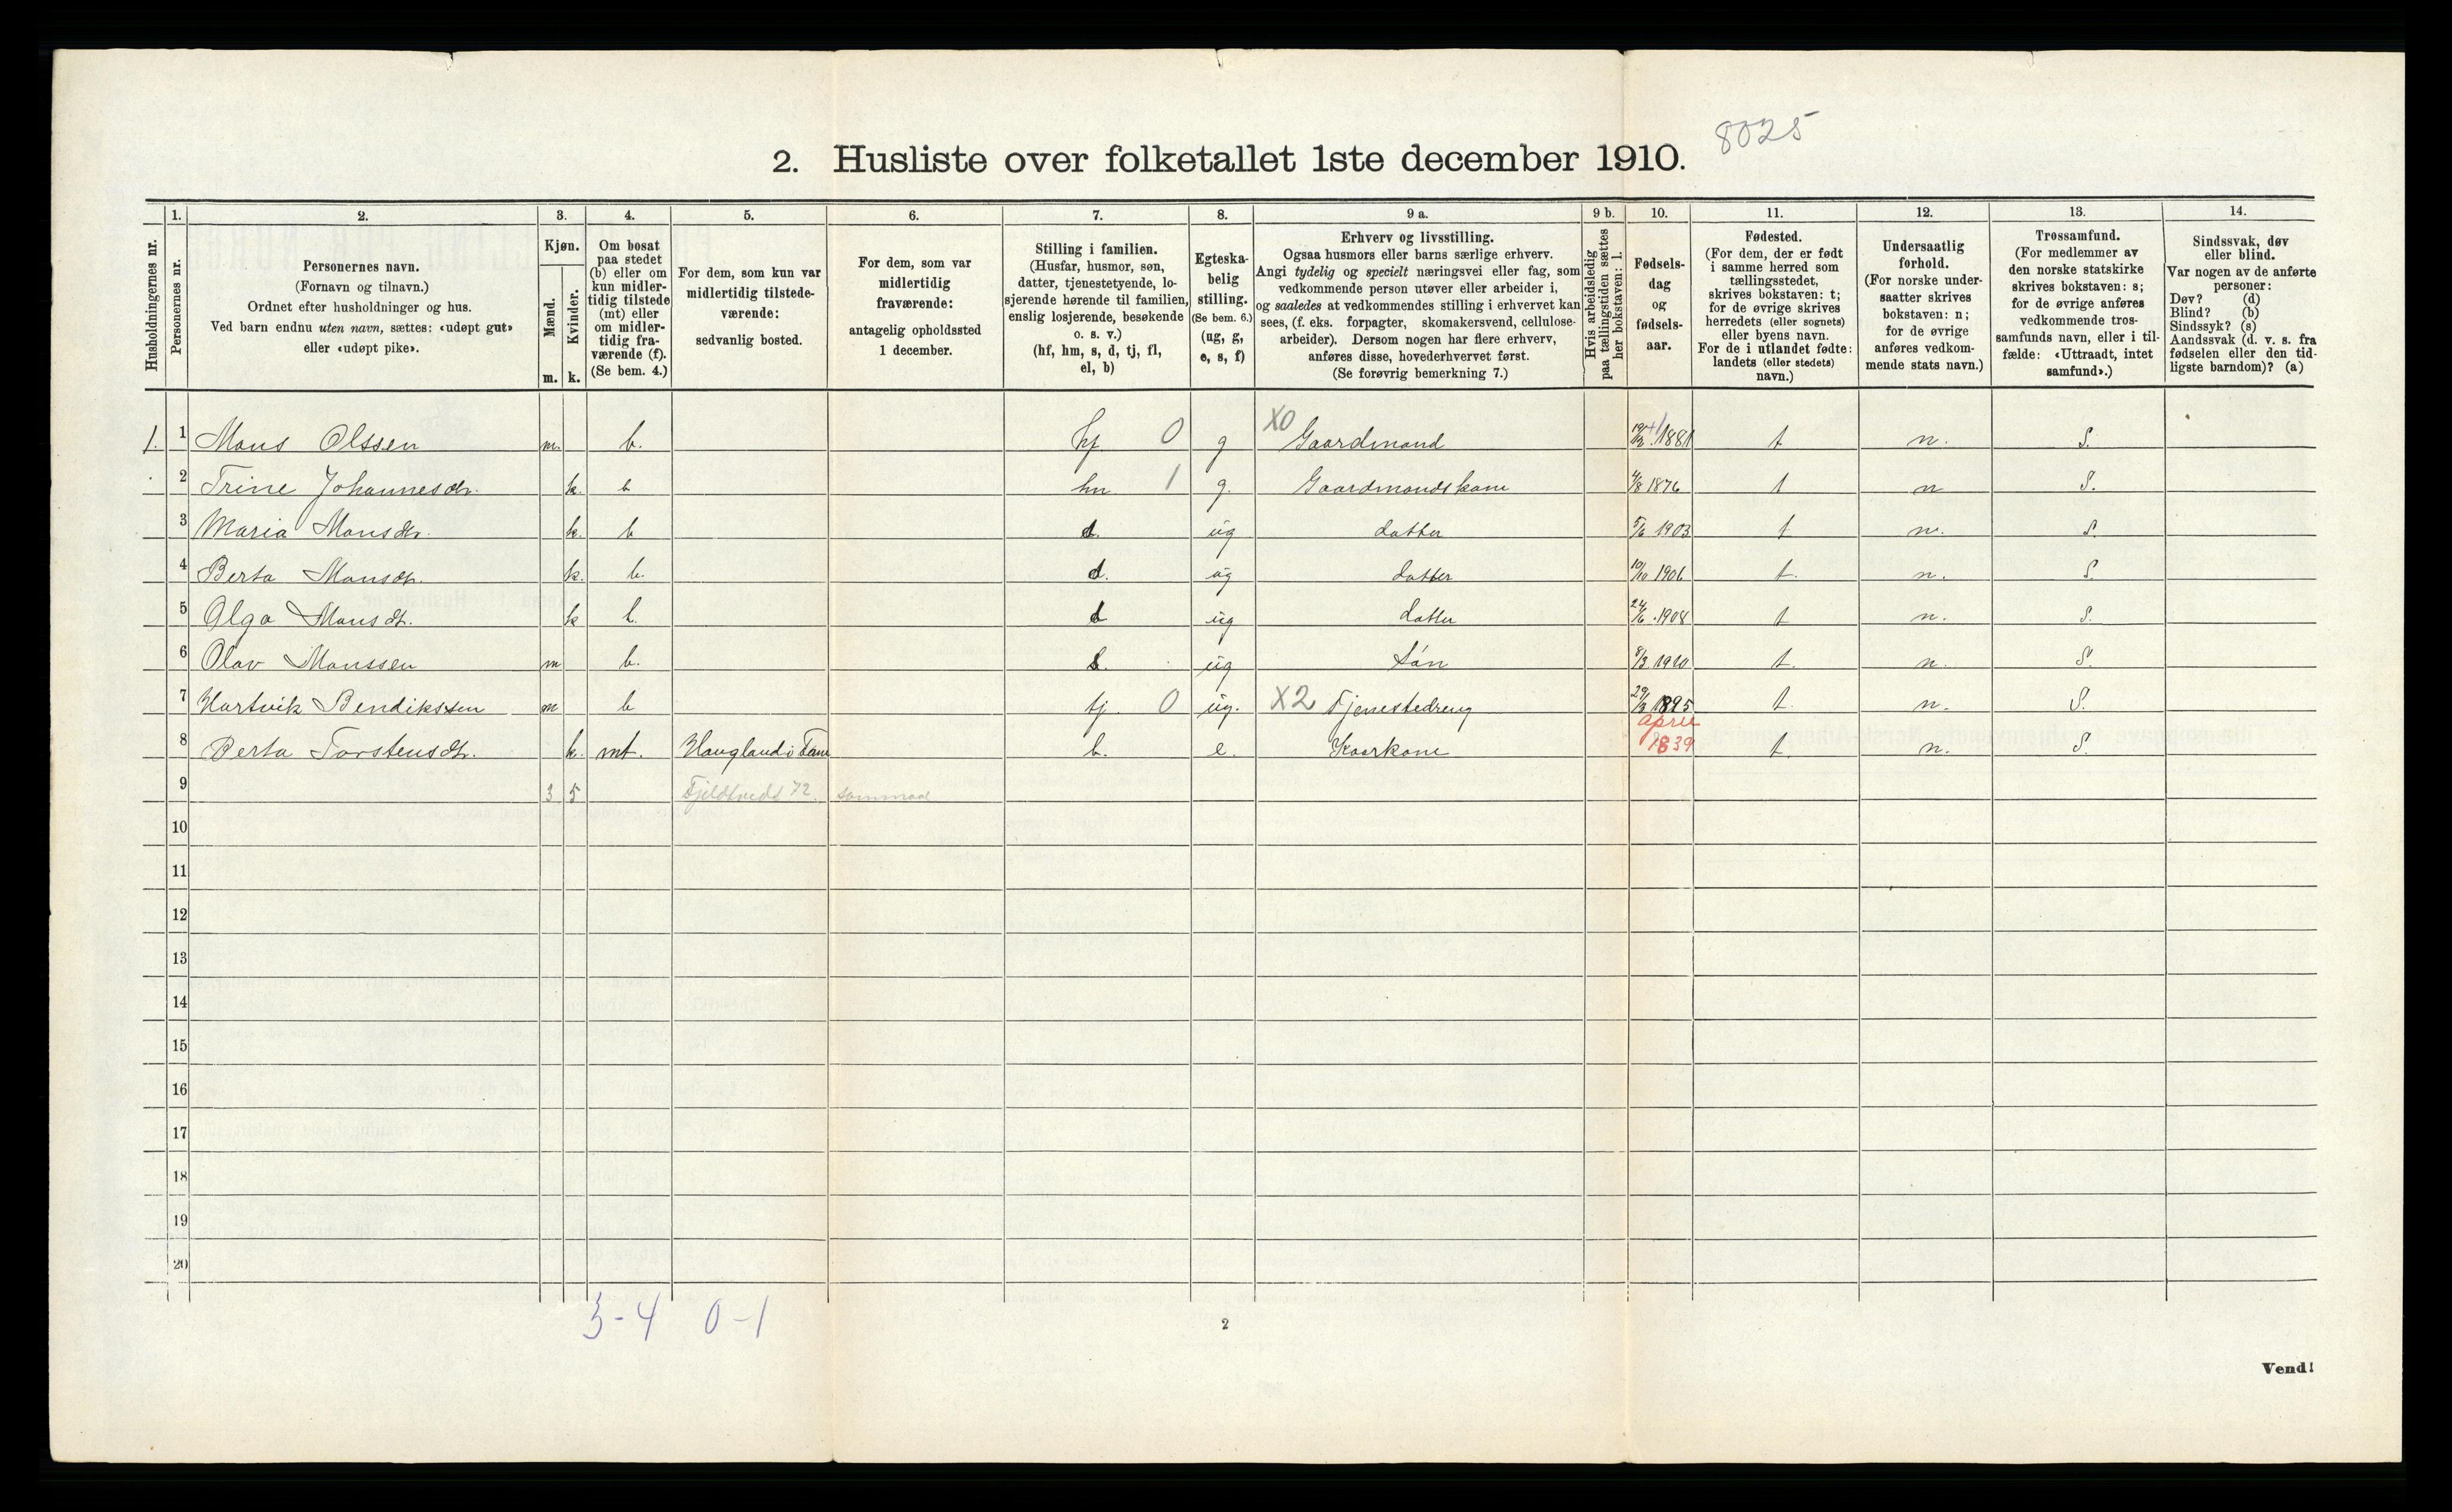 8025
2. Husliste over folketallet 1ste december 1910.
1. 2. 3. 4. 5. 6. 7. 8. 9 a. 9 b. 10. 11. 12. 13. 14.
Husholdningernes nr.
Personernes nr.
Personernes navn.
(Fornavn og tilnavn.)
Ordnet efter husholdninger og hus.
Ved barn endnu uten navn, sættes: «udøpt gut»
eller «udøpt pike».
Kjøn.
Mænd.
Kvinder.
m. k.
Om bosat
paa stedet
(b) eller om
kun midler-
tidig tilstede
(mt) eller
om midler-
tidig fra-
værende (f).
(Se bem. 4.)
For dem, som kun var
midlertidig tilstede-
værende:
sedvanlig bosted.
For dem, som var
midlertidig
fraværende:
antagelig opholdssted
1 december.
Stilling i familien.
(Husfar, husmor, søn,
datter, tjenestetyende, lo-
sjerende hørende til familien,
enslig losjerende, besøkende
o. s. v.)
(hf, hm, s, d, tj, fl,
el, b)
Egteska-
belig
stilling.
(Se bem. 6.)
(ug, g,
e, s, f)
Erhverv og livsstilling.
Ogsaa husmors eller barns særlige erhverv.
Angi tydelig og specielt næringsvei eller fag, som
vedkommende person utøver eller arbeider i,
og saaledes at vedkommendes stilling i erhvervet kan
sees, (f. eks. forpagter, skomakersvend, cellulose-
arbeider). Dersom nogen har flere erhverv,
anføres disse, hovederhvervet først.
(Se forøvrig bemerkning 7.)
Hvis arbeidsledig
paa tællingstiden sættes
her bokstaven: l.
Fødsels-
dag
og
fødsels-
aar.
Fødested.
(For dem, der er født
i samme herred som
tællingsstedet,
skrives bokstaven: t;
for de øvrige skrives
herredets (eller sognets)
eller byens navn.
For de i utlandet fødte:
landets (eller stedets)
navn.)
Undersaatlig
forhold.
(For norske under-
saatter skrives
bokstaven: n;
for de øvrige
anføres vedkom-
mende stats navn.)
Trossamfund.
(For medlemmer av
den norske statskirke
skrives bokstaven: s;
for de øvrige anføres
vedkommende tros-
samfunds navn, eller i til-
fælde: «Uttraadt, intet
samfund».)
Sindssvak, døv
eller blind.
Var nogen av de anførte
personer:
Døv? (d)
Blind? (b)
Sindssyk? (s)
Aandssvak (d. v. s. fra
fødselen eller den tid-
ligste barndom)? (a)
1. 1 Mons Olssen m. b. hf 0 g X0 Gaardmand 1881 t n. S.
2 Trine Johannesdtr. k. b hm 1 g. Gaardmandskone 4/8 1876 t n S.
3 Maria Monsdtr. k. b d. ug datter 5/6 1903 t n. S.
4 Berta Monsdtr. k. b. d. ug datter 10/10 1906 t. n. S.
5 Olga Monsdt. k b. d ug datter 24/6 1908 t n. S.
6 Olav Monssen m b. s. ug Søn 8/3 1910 t. n. S.
7 Hartvik Bendikssen m b tj. 0 ug. X2 Tjenestedreng 1895 t. n. S.
8 Berta Torstensdtr. k. mt. Haugland i Fane b. e. Kaarkone april 1839 t. n. S.
9 3 5 Fjeldtvedt 72.
10
11
12
13
14
15
16
17
18
19
20
3-4 0-1
2
Vend!